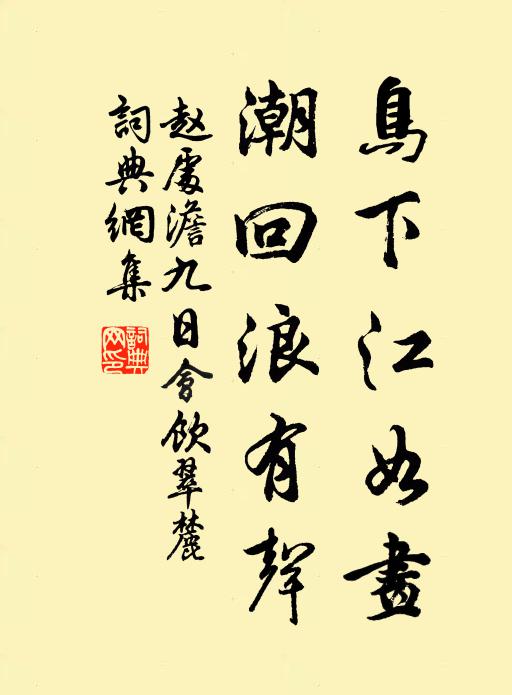 鳥下江如畫
潮回浪有聲
赵處澹九日會飲翠麓
詞典網集
詞典網印